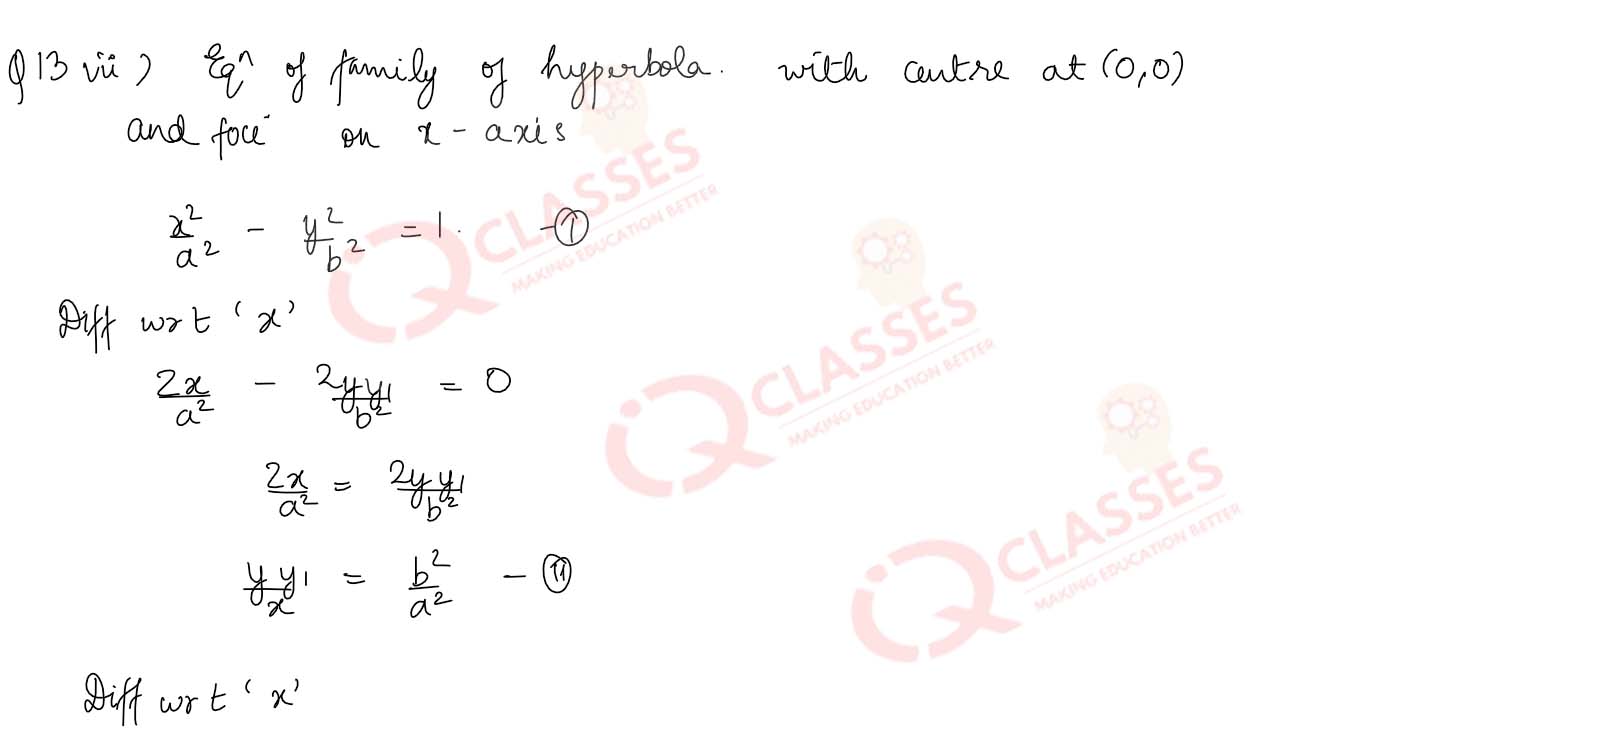 Q13 vii) Eqn of family of hyperbola. with centre at (0,0)
and foci on x-axis
x²/a² - y²/b² = 1. - ①
Diff wrt 'x'
2x/a² - 2yy₁/b² = 0
2x/a² = 2yy₁/b²
yy₁/x = b²/a² - ⑪
Diff wrt 'x'
IQ CLASSES
MAKING EDUCATION BETTER
IQ CLASSES
MAKING EDUCATION BETTER
IQ CLASSES
MAKING EDUCATION BETTER